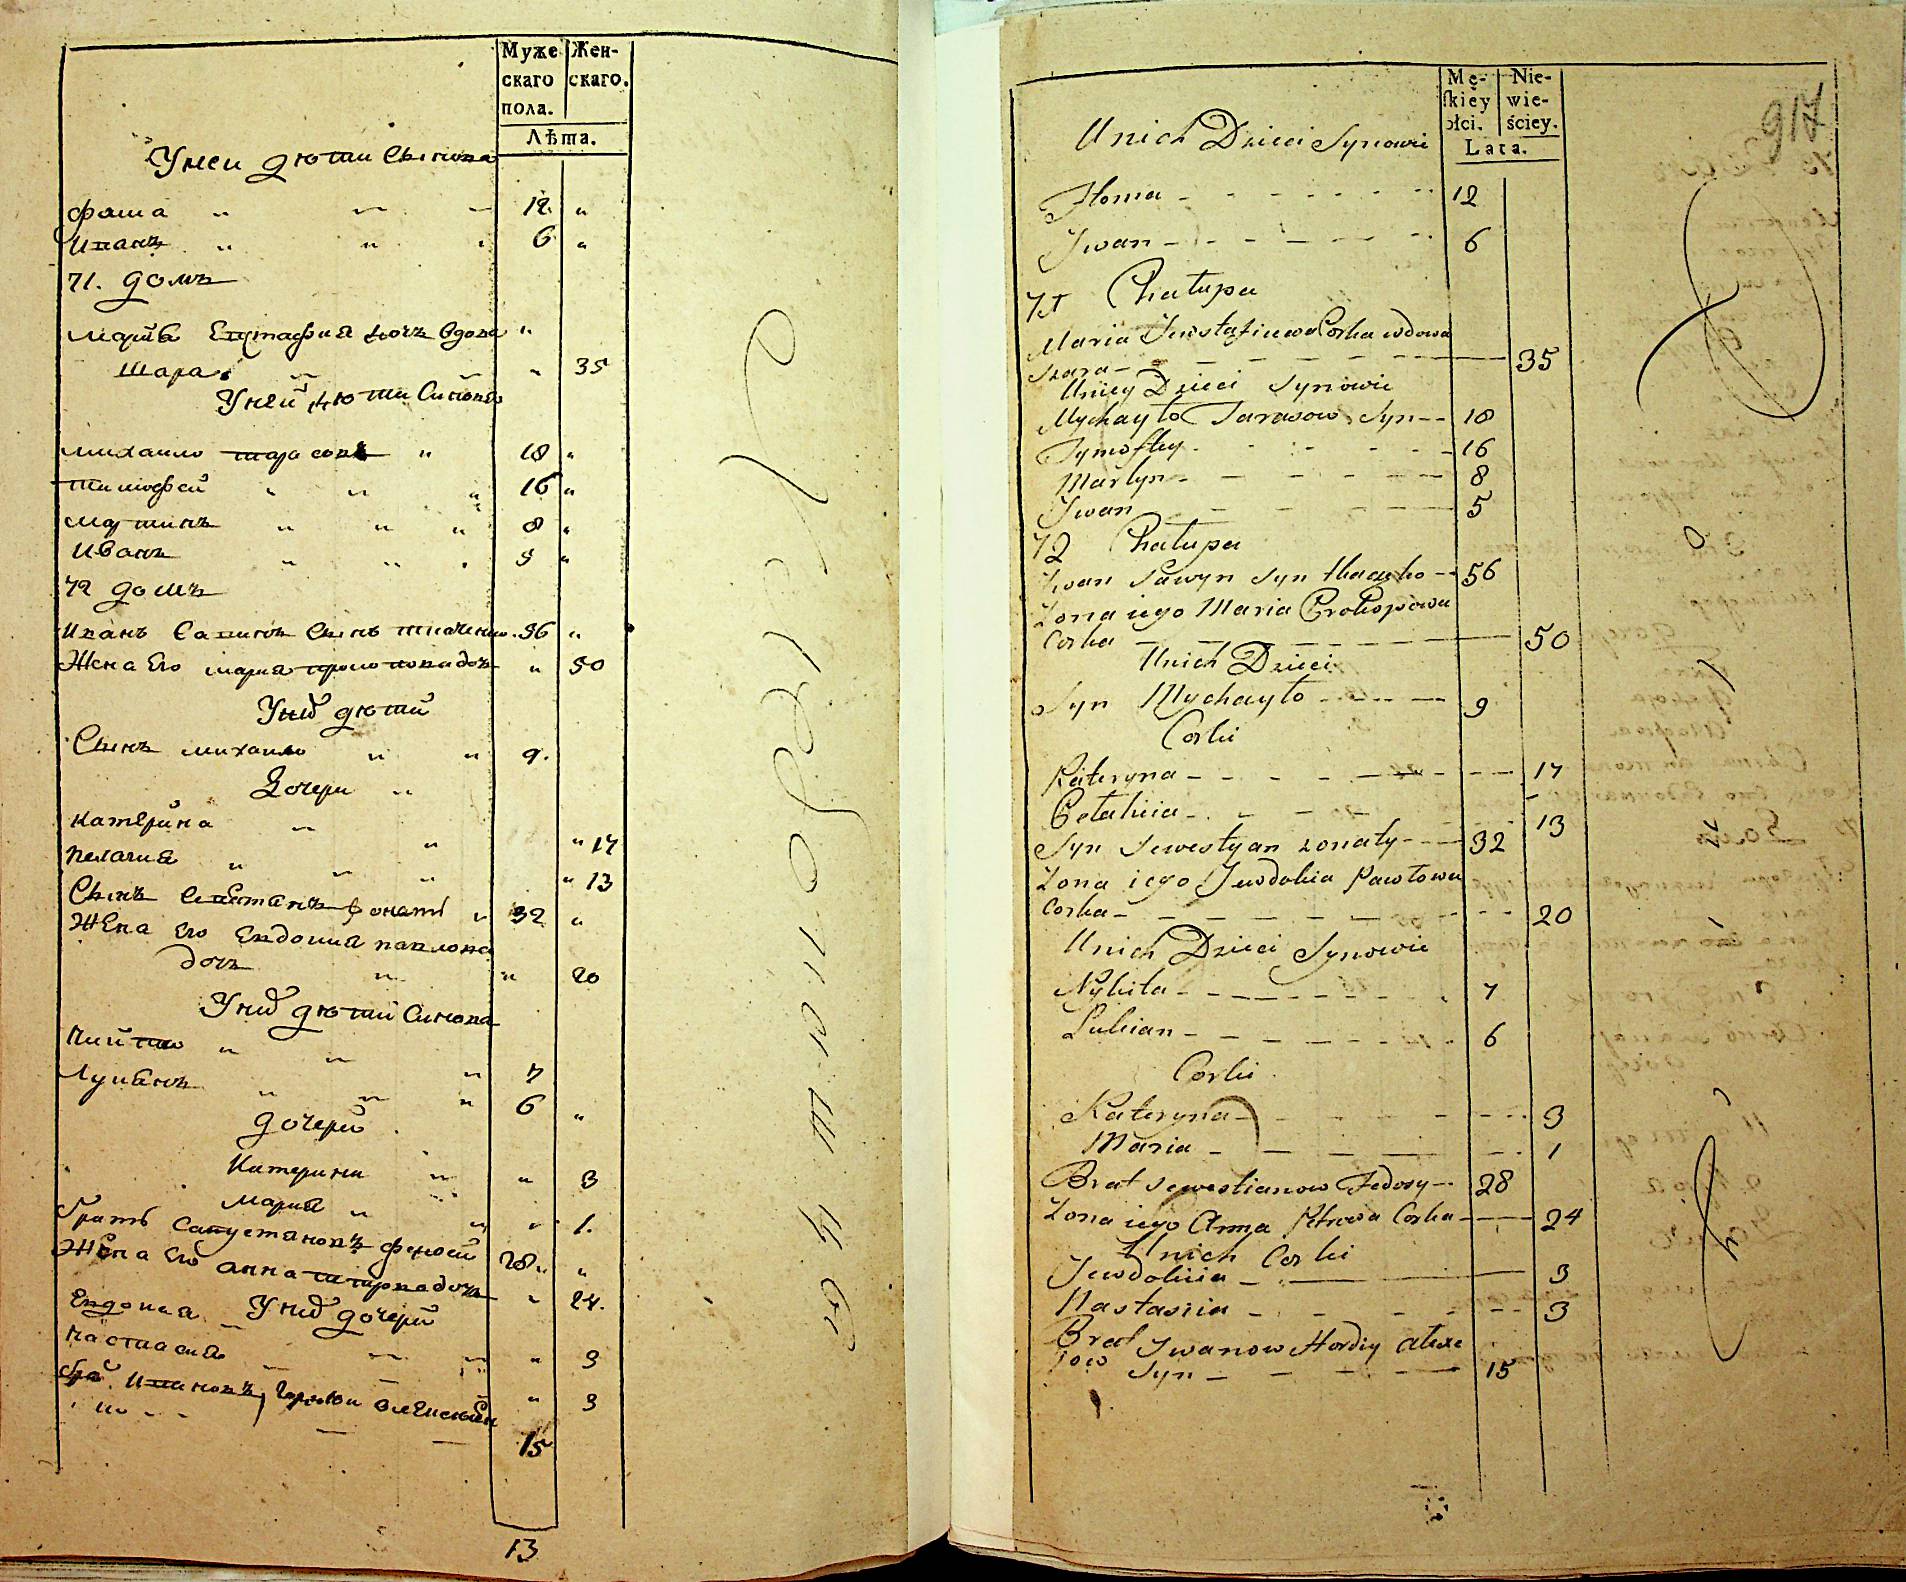 Муже
скаго
пола.
Жен-
скаго.
Лѣта.
У неи дѣти Синова
Фома 12
Иванъ 6
71. домъ
Мария Евстафия дочь вдова
Шара 35
У неи дѣти Синова
Михаило Тарасовъ 18
Тимофеи 16
Мартинъ 8
Иванъ 5
72 домъ
Иванъ Савинъ Синъ 56
Жена Его Мария Прокопова дочь 50
У них дѣти
Синъ Михаило 9
Дочери
Катерина 17
Пелагия 13
Синъ Севестиянъ жонатъ 32
Жена Его Евдокия павлова
дочь 20
У них дѣти Синова
Никита 7
Лукиянъ 6
дочери
Катерина 3
Мария 1
братъ Савустиановъ Федосий 28
Жена Его анна петрова дочь 24
У них дочери
Евдокия 3
Настасия 3
Ивановъ
15
13
Mę-
skiey
płci.
Nie-
wie-
ściey.
Lata.
917
U nich Dzieci Synowie
Homa 12
Iwan 6
71 Chałupa
Maria Jewstafiiewa Corka wdowa
Szara 35
U niey Dzieci Synowie
Mychayło Tarasow Syn 18
Tymoftey 16
Martyn 8
Iwan 5
72 Chałupa
Iwan Sawyn Syn 56
Zona iego Maria Prokopowa
Corka 50
U nich Dzieci
Syn Mychayło 9
Corki
Kateryna 17
Pelahiia 13
Syn Sewestyan zonaty 32
Zona iego Jewdokia Pawłowa
Corka 20
U nich Dzieci Synowie
Nykita 7
Lukian 6
Corki
Kateryna 3
Maria 1
Brat Sewestianow Fedosy 28
Zona iego Anna Petrowa Corka 24
U nich Corki
Jewdokiia 3
Nastasiia 3
Brat Iwanow Hordiy Alexe
iow Syn 15